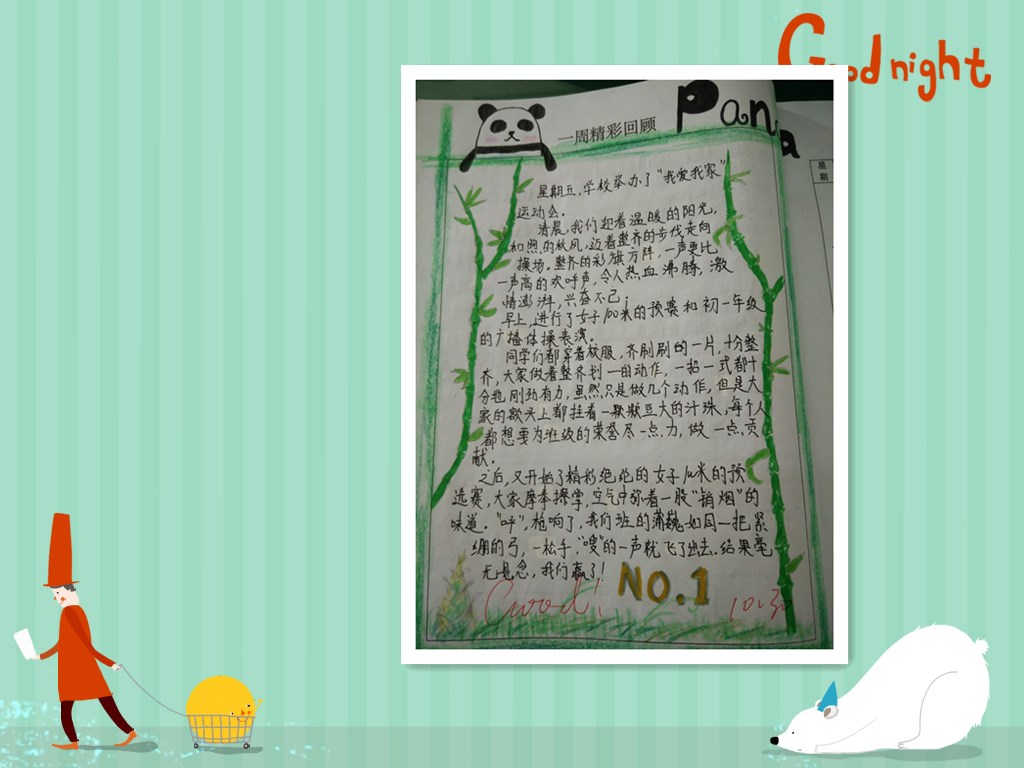 Good night
Panda
一周精彩回顾
星期
星期五，学校举办了“我爱我家”
运动会。
清晨，我们迎着温暖的阳光，
和煦的秋风，迈着整齐的步伐走向
操场。整齐的彩旗方阵，一声更比
一声高的欢呼声，令人热血沸腾，激
情澎湃，兴奋不已！
早上，进行了女子100米的预赛和初一年级
的广播体操表演。
同学们都穿着校服，齐刷刷的一片，十分整
齐，大家做着整齐划一的动作，一招一式都十
分地刚劲有力，虽然只是做几个动作，但是大
家的额头上都挂着一颗颗豆大的汗珠，每个人
都想要为班级的荣誉尽一点力，做一点贡
献。
之后，又开始了精彩绝伦的女子100米的预
选赛，大家摩拳擦掌，空气中弥着一股“销烟”的
味道。“呯”，枪响了，我们班的蒲巍如同一把紧
绷的弓，一松手，“嗖”的一声就飞了出去。结果毫
无悬念，我们赢了！
NO.1
Good!